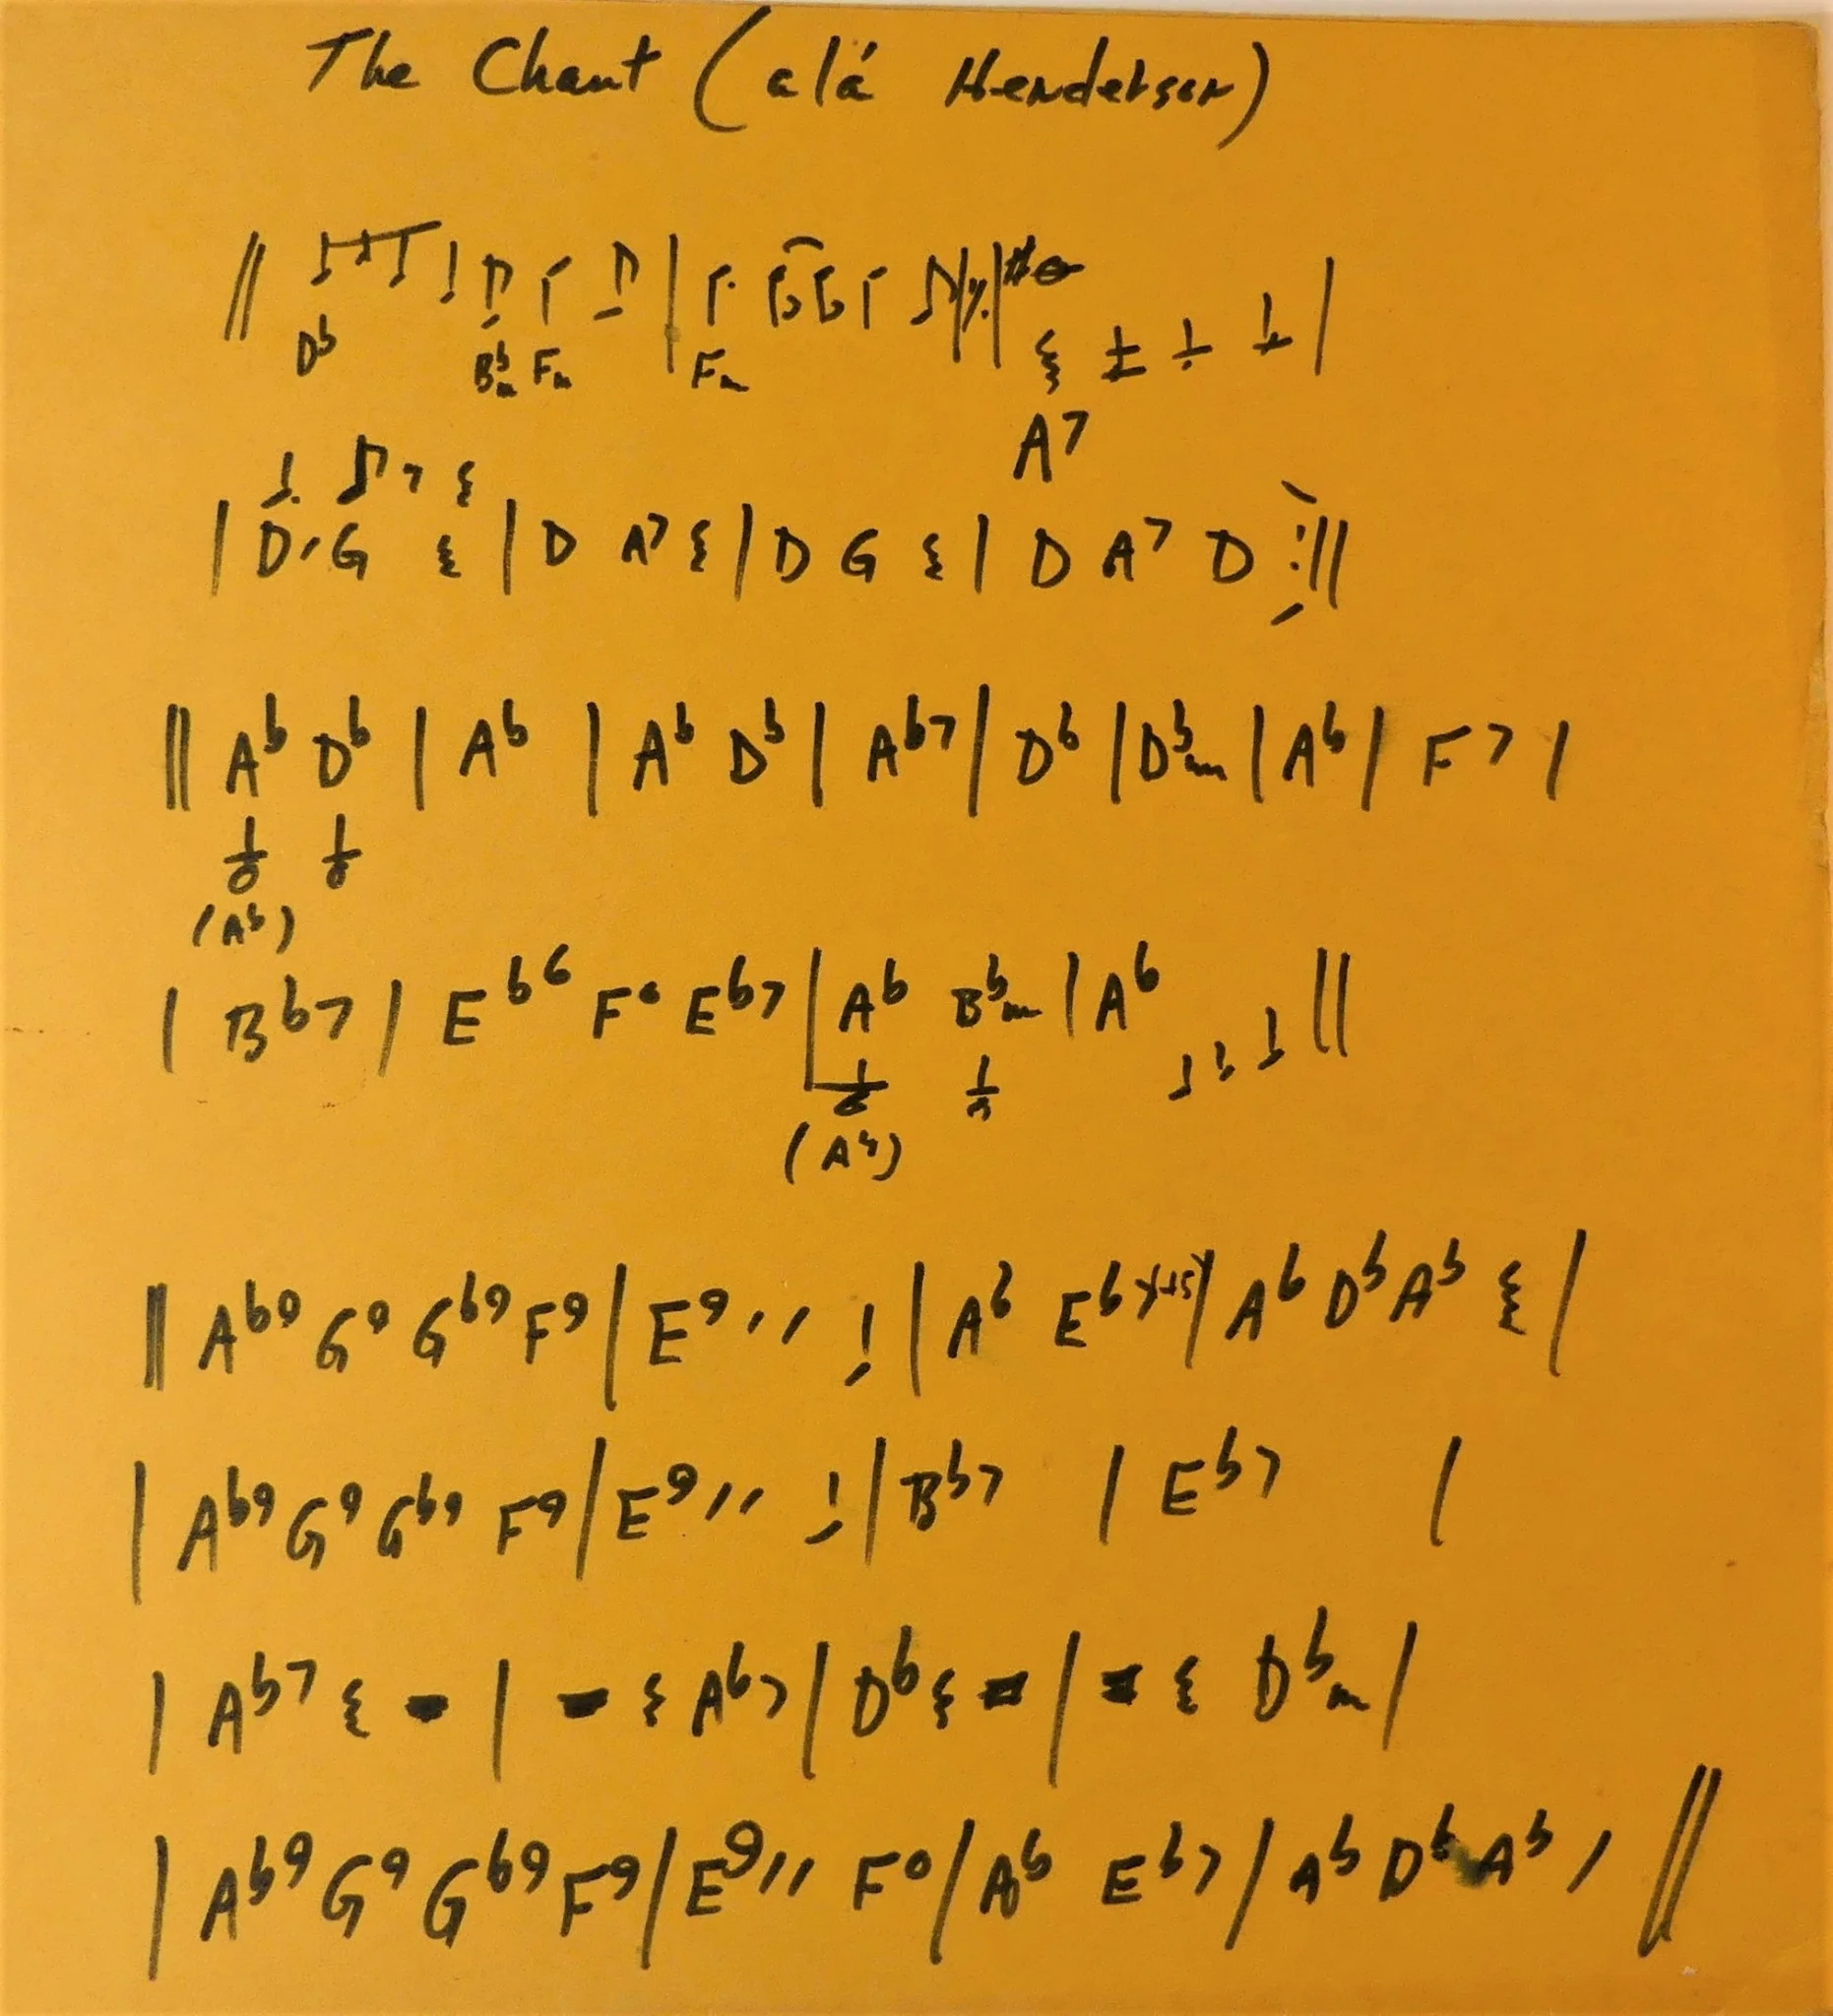 The Chant (alá Henderson)
‖ D♭ B♭m Fm | Fm | 𝄎 |
A7 |
| D / G 𝄽 | D A7 𝄽 | D G 𝄽 | D A7 D :‖
‖ A♭ D♭ | A♭ | A♭ D♭ | A♭7 | D♭ | D♭m | A♭ | F7 |
(A♭)
| B♭7 | E♭6 F° E♭7 | A♭ B♭m | A♭ ‖
(A♭)
‖ A♭9 G9 G♭9 F9 | E9 / / | A♭ E♭7+5 | A♭ D♭ A♭ 𝄽 |
| A♭9 G9 G♭9 F9 | E9 / / | B♭7 | E♭7 |
| A♭7 𝄽 𝄼 | 𝄼 𝄽 A♭7 | D♭ 𝄽 𝄼 | 𝄼 𝄽 D♭m |
| A♭9 G9 G♭9 F9 | E9 / / F° | A♭ E♭7 | A♭ D♭ A♭ / ‖